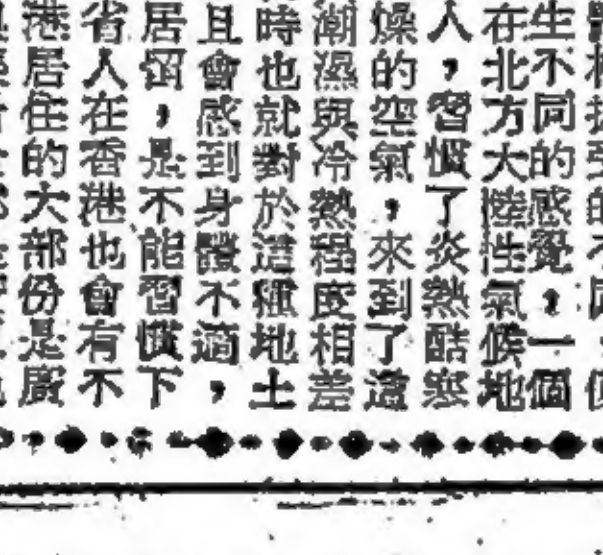 生不同的感覺，一個
在北方大陸性氣候地
人，習慣了炎熱酷寒
燥的空氣，來到了這
潮濕與冷熱程度相差
時也就對於這種地土
且會感到身體不適，
居留，是不能習慣下
省人在香港也會有不
港居住的大部份是廣